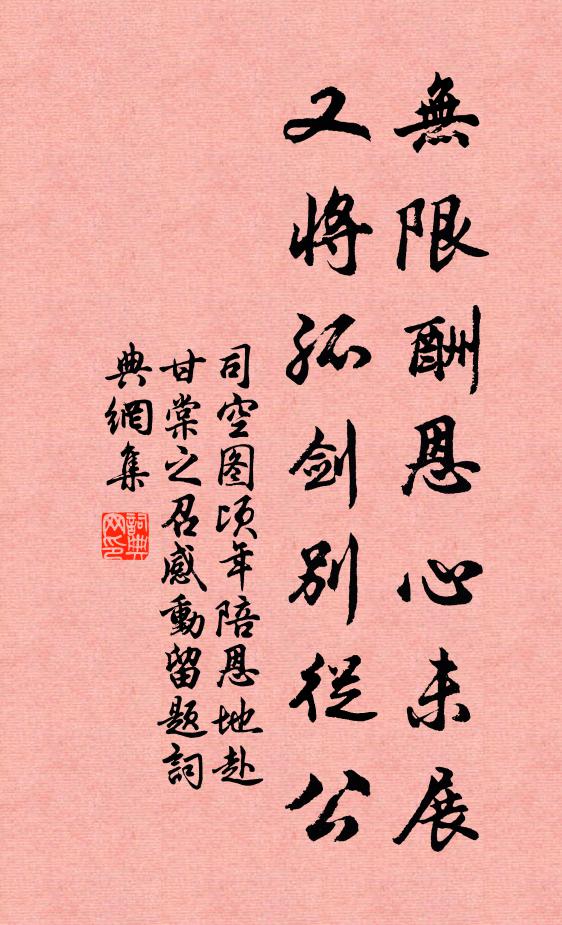 無限酬恩心未展
又將孤劍別從公
司空图頃年陪恩地赴
甘棠之召感動留題詞
典網集
詞典
网印